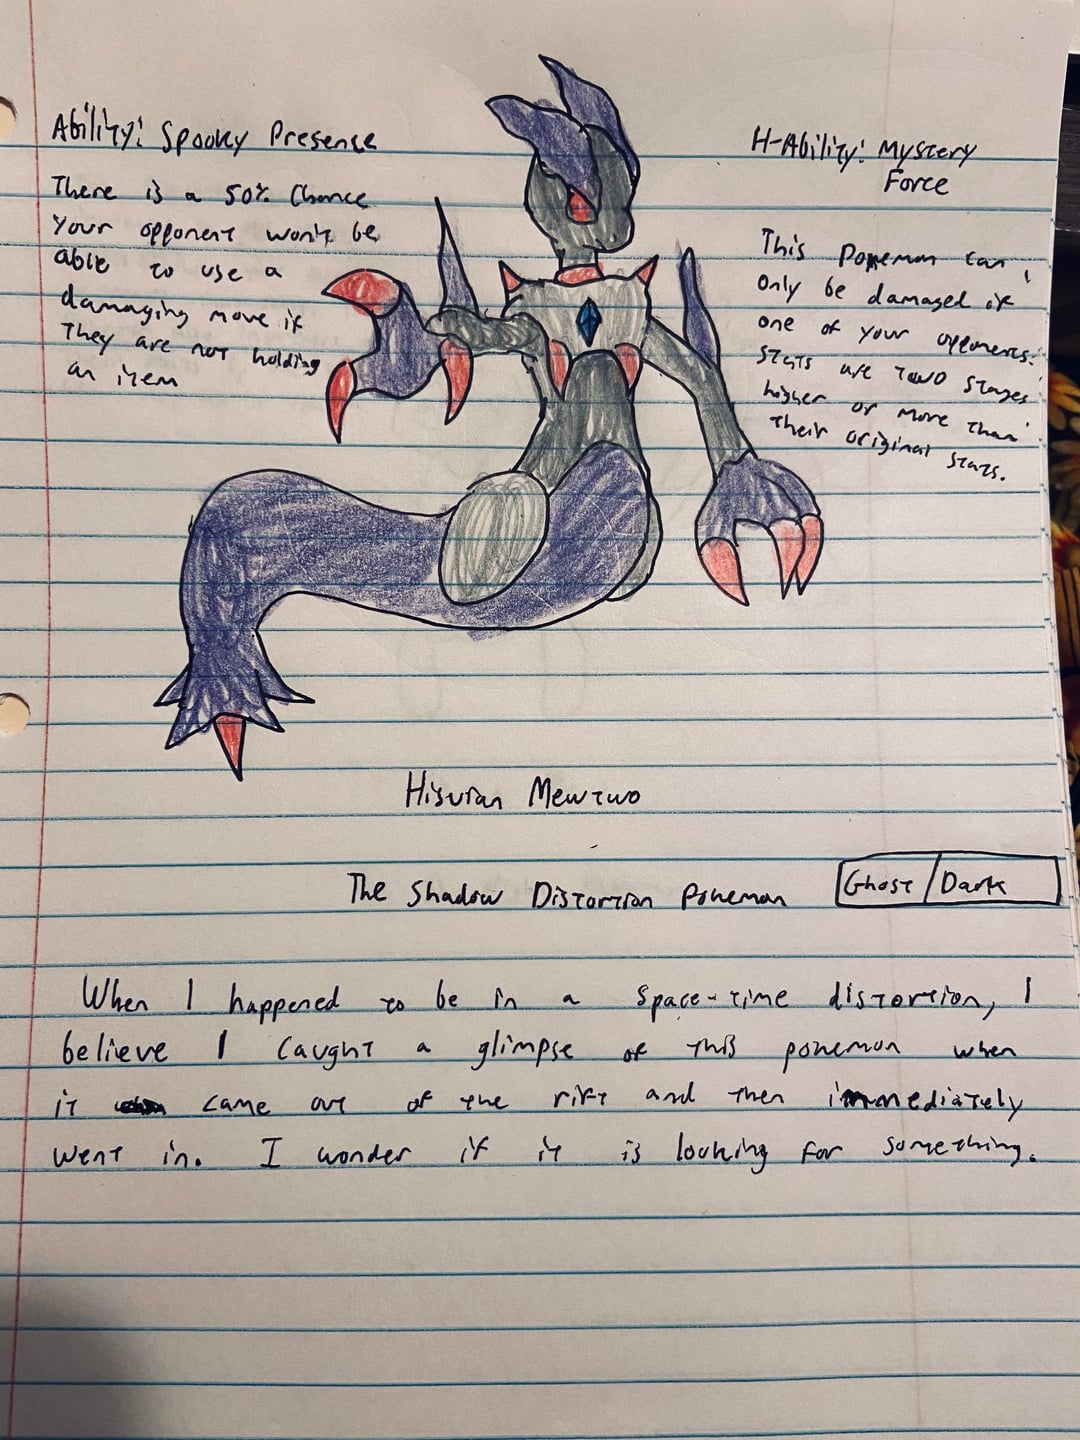 Ability: Spooky Presence
There is a 50% Chance
your opponent won't be
able to use a
damaging move if
they are not holding
an item
H-Ability: Mystery
Force
This Pokemon can
only be damaged if
one of your opponents
stats are two stages
higher or more than
their original stats.
Hisuian Mewtwo
The Shadow Distortion Pokemon
Ghost / Dark
When I happened to be in a space-time distortion, I
believe I caught a glimpse of this pokemon when
it came out of the rift and then immediately
went in. I wonder if it is looking for something.